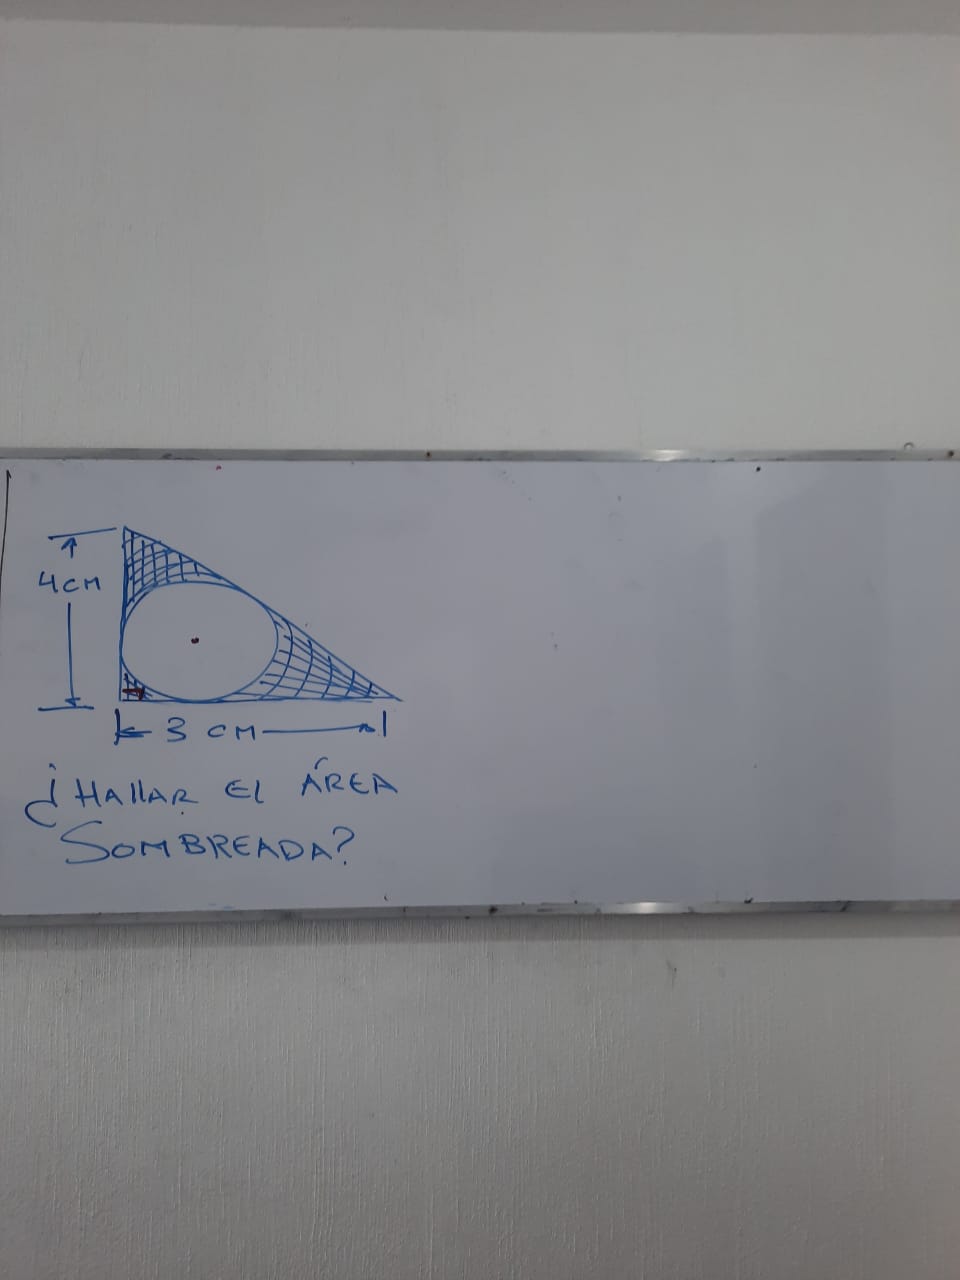 4cm
3 cm
¿HAllAR El ÁREA
SOMBREADA?